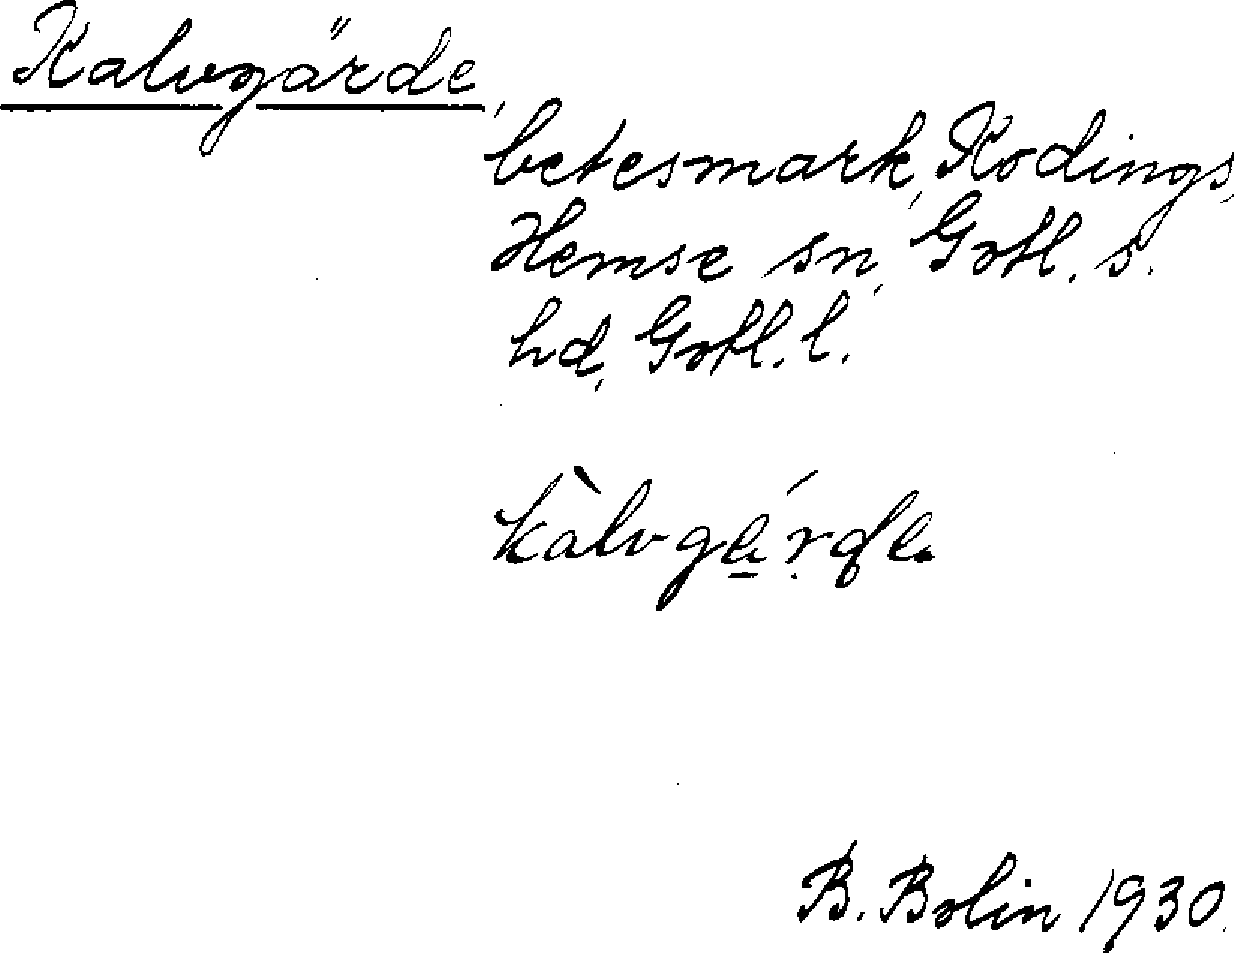 Kalvgärde,
betesmark, Kodings,
Hemse sn, Gotl. s.
hd, Gotl. l.
kàlvgé̲ṛde
B. Bolin 1930.